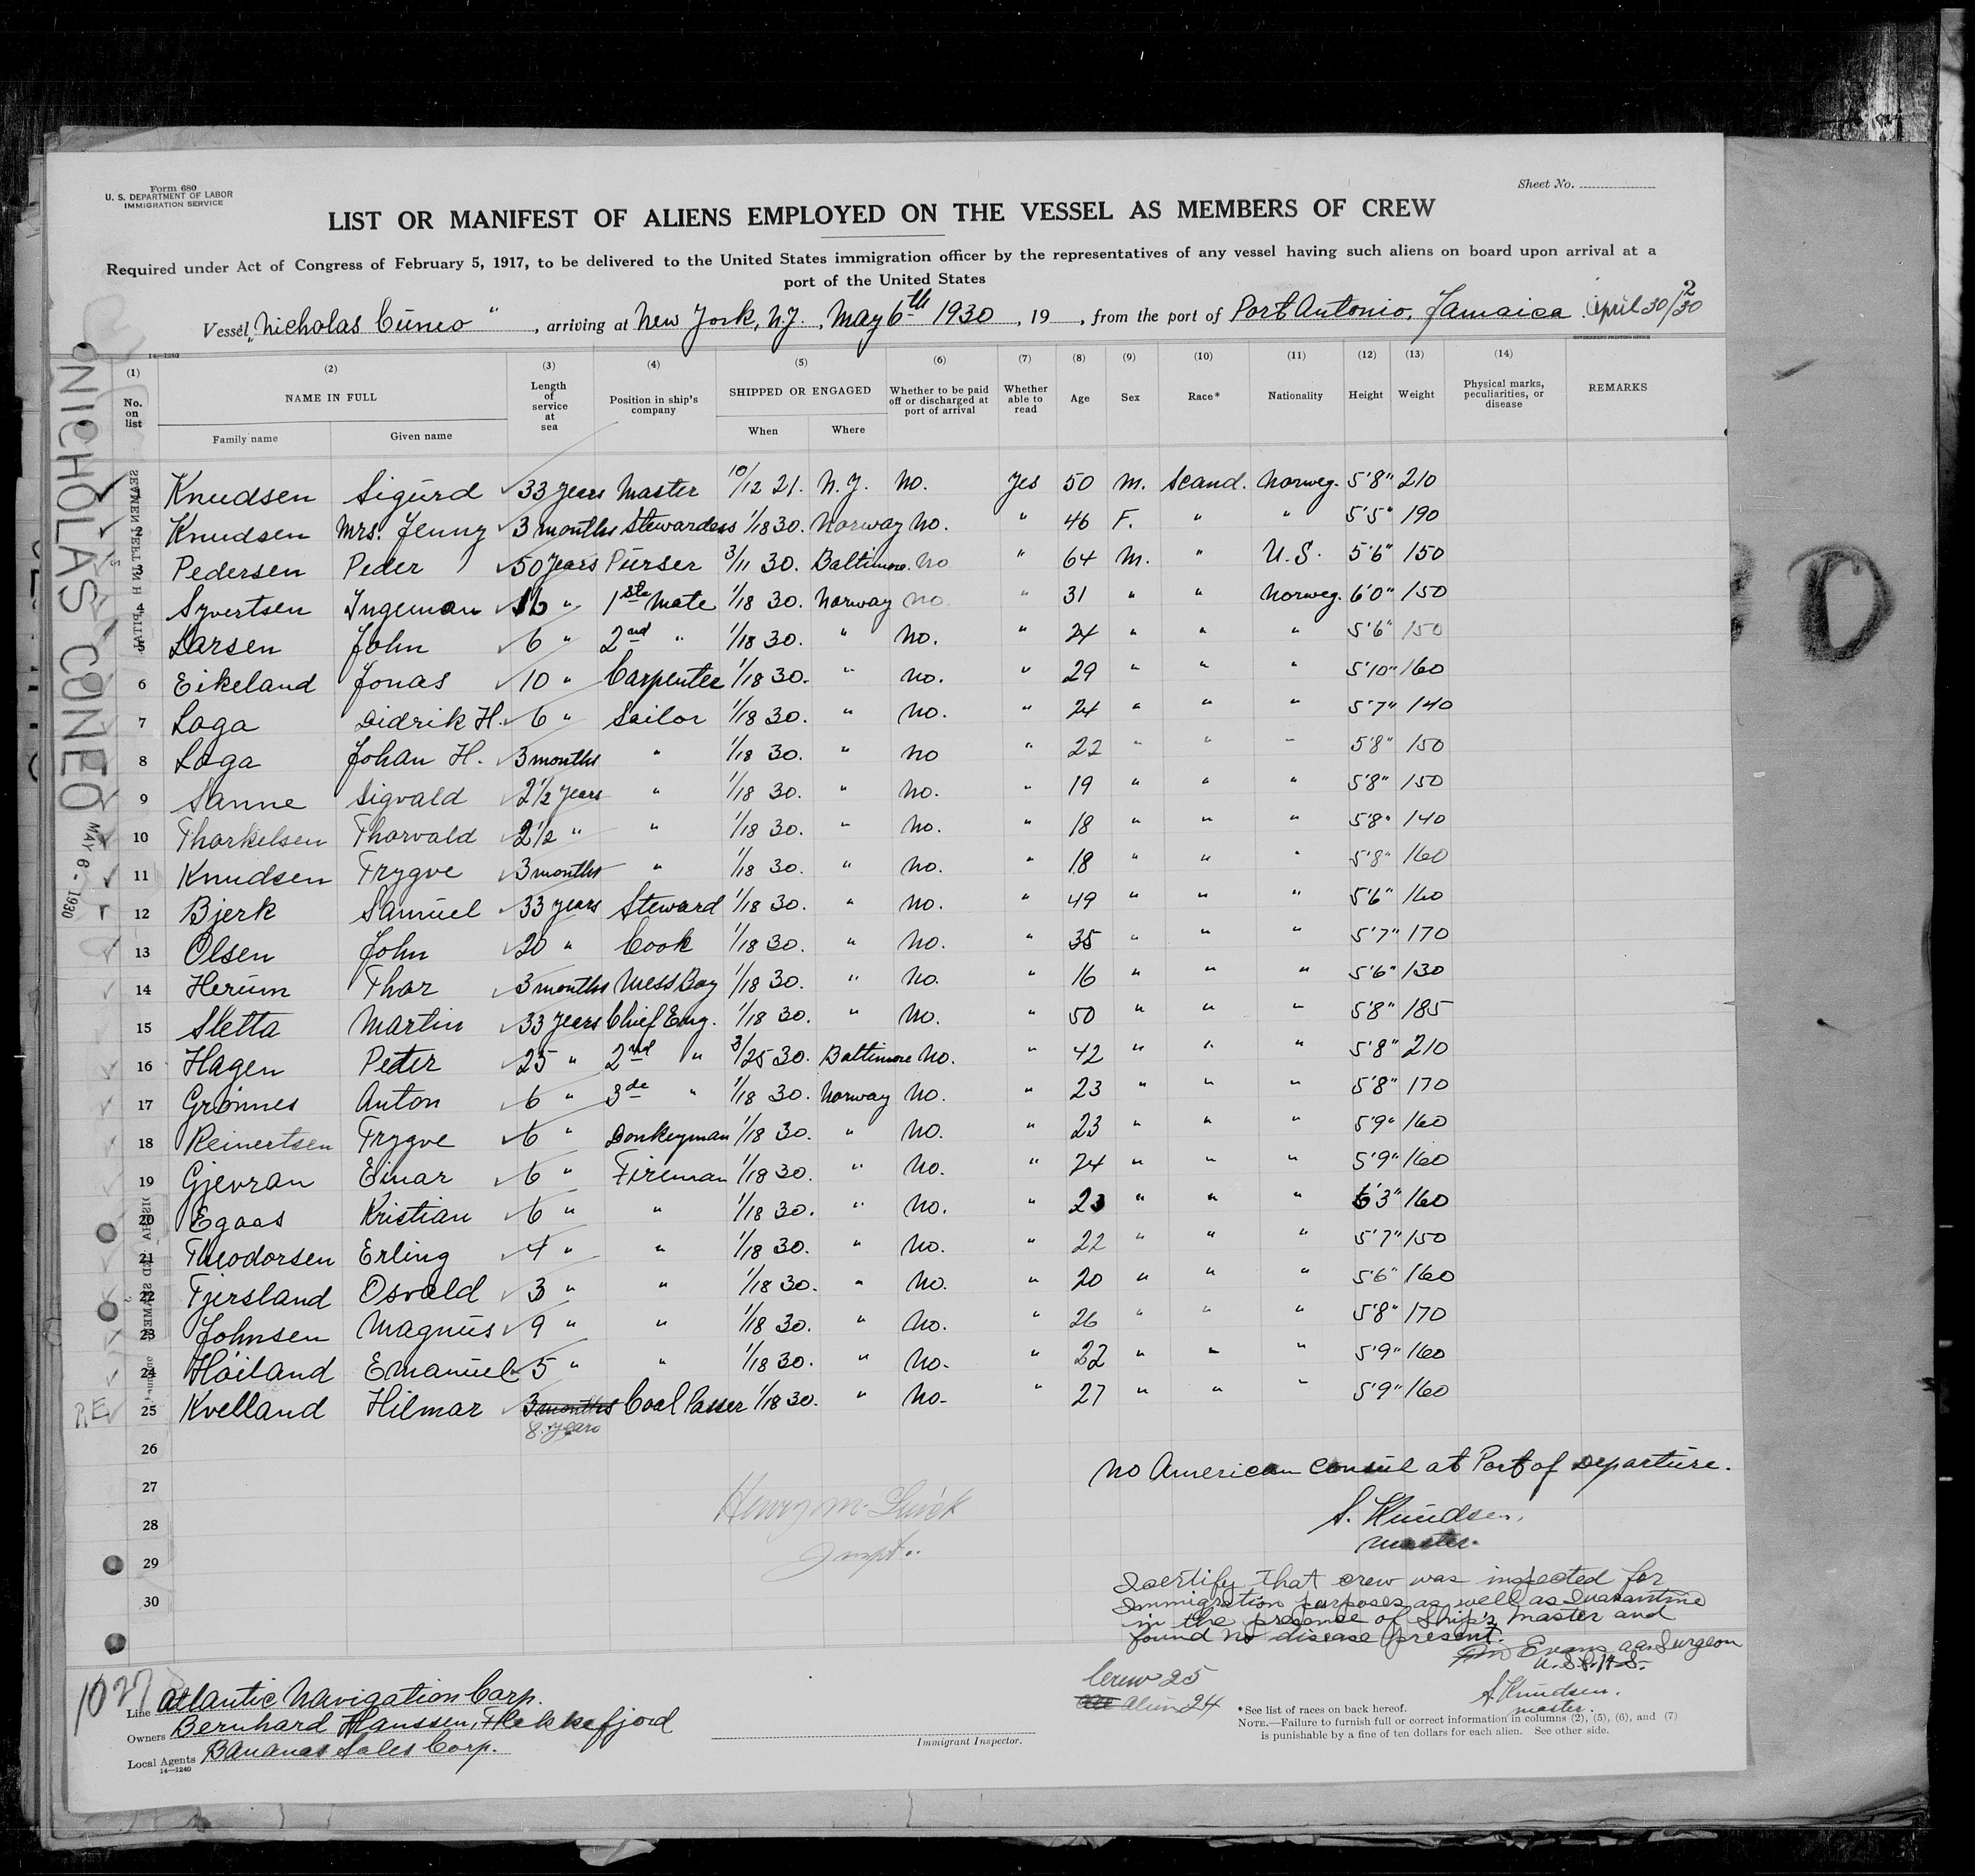 Form 680
U. S. DEPARTMENT OF LABOR
IMMIGRATION SERVICE
Sheet No.
LIST OR MANIFEST OF ALIENS EMPLOYED ON THE VESSEL AS MEMBERS OF CREW
Required under Act of Congress of February 5, 1917, to be delivered to the United States immigration officer by the representatives of any vessel having such aliens on board upon arrival at a
port of the United States
2
Vessel "Nicholas Cuneo", arriving at New York, N.Y., May 6th 1930, 19, from the port of Port Antonio, Jamaica. April 30/30
14-1240
GOVERNMENT PRINTING OFFICE
(1) (2) (3) (4) (5) (6) (7) (8) (9) (10) (11) (12) (13) (14)
No. on list NAME IN FULL Length of service at sea Position in ship's company SHIPPED OR ENGAGED Whether to be paid off or discharged at port of arrival Whether able to read Age Sex Race* Nationality Height Weight Physical marks, peculiarities, or disease REMARKS
Family name Given name When Where
Knudsen Sigurd 33 years Master 10/12 21. N.Y. No. Yes 50 M. Scand. Norweg. 5'8" 210
2 Knudsen Mrs. Jenny 3 months Stewardess 1/18 30. Norway No. " 46 F. " " 5'5" 190
3 Pedersen Peder 50 years Purser 3/11 30. Baltimore. No " 64 M. " U.S. 5'6" 150
4 Syvertsen Ingeman 16 " 1ste Mate 1/18 30. Norway No " 31 " " Norweg. 6'0" 150
5 Larsen John 6 " 2nd " 1/18 30. " No. " 24 " " " 5'6" 150
6 Eikeland Jonas 10 " Carpenter 1/18 30. " No. " 29 " " 5'10" 160
7 Laga Didrik H. 6 " Sailor 1/18 30. " No. " 24 " " " 5'7" 140
8 Laga Johan H. 3 months " 1/18 30. " No " 22 " " " 5'8" 150
9 Sanne Sigvald 2 1/2 years " 1/18 30. " No. " 19 " " " 5'8" 150
10 Tharkelsen Thorvald 2 1/2 " " 1/18 30. " No. " 18 " " " 5'8" 140
11 Knudsen Trygve 3 months " 1/18 30. " No. " 18 " " " 5'8" 160
12 Bjerk Samuel 33 years Steward 1/18 30. " No. " 49 " " " 5'6" 160
13 Olsen John 20 " Cook 1/18 30. " No. " 35 " " " 5'7" 170
14 Herum Thor 3 months Mess Boy 1/18 30. " No. " 16 " " " 5'6" 130
15 Sletta Martin 33 years Chief Eng. 1/18 30. " No. " 50 " " " 5'8" 185
16 Hagen Peter 25 " 2nd " 3/25 30. Baltimore No. " 42 " " " 5'8" 210
17 Grönnes Anton 6 " 3de " 1/18 30. Norway No. " 23 " " " 5'8" 170
18 Reinertsen Trygve 6 " Donkeyman 1/18 30. " No. " 23 " " " 5'9" 160
19 Gjevran Einar 6 " Fireman 1/18 30. " No. " 24 " " " 5'9" 160
20 Egaas Kristian 6 " " 1/18 30. " No. " 23 " " " 6'3" 160
21 Theodorsen Erling 4 " " 1/18 30. " No. " 22 " " " 5'7" 150
22 Tjersland Osvald 3 " " 1/18 30. " No. " 20 " " " 5'6" 160
23 Johnsen Magnus 9 " " 1/18 30. " No. " 26 " " " 5'8" 170
24 Höiland Emanuel 5 " " 1/18 30. " No. " 22 " " " 5'9" 160
25 Kvelland Hilmar 3 months Coal Passer 1/18 30. " No. " 27 " " " 5'9" 160
8 years
26
27
28
29
30
No American Consul at Port of Departure.
S. Knudsen,
Master.
Henry M.
Inspt.
I certify that crew was inspected for
immigration purposes as well as Quarantine
in the presence of Ship's Master and
found no disease present.
Evans aa Surgeon
U.S.P.H.S.
S. Knudsen.
master.
Crew 25
Alien 24
1027
Line Atlantic Navigation Corp.
Owners Bernhard Hanssen, Flekkefjord
Local Agents Bananas Sales Corp.
14-1240
Immigrant Inspector.
*See list of races on back hereof.
NOTE.—Failure to furnish full or correct information in columns (2), (5), (6), and (7)
is punishable by a fine of ten dollars for each alien. See other side.
NICHOLAS CUNEO
MAY 6 - 1930